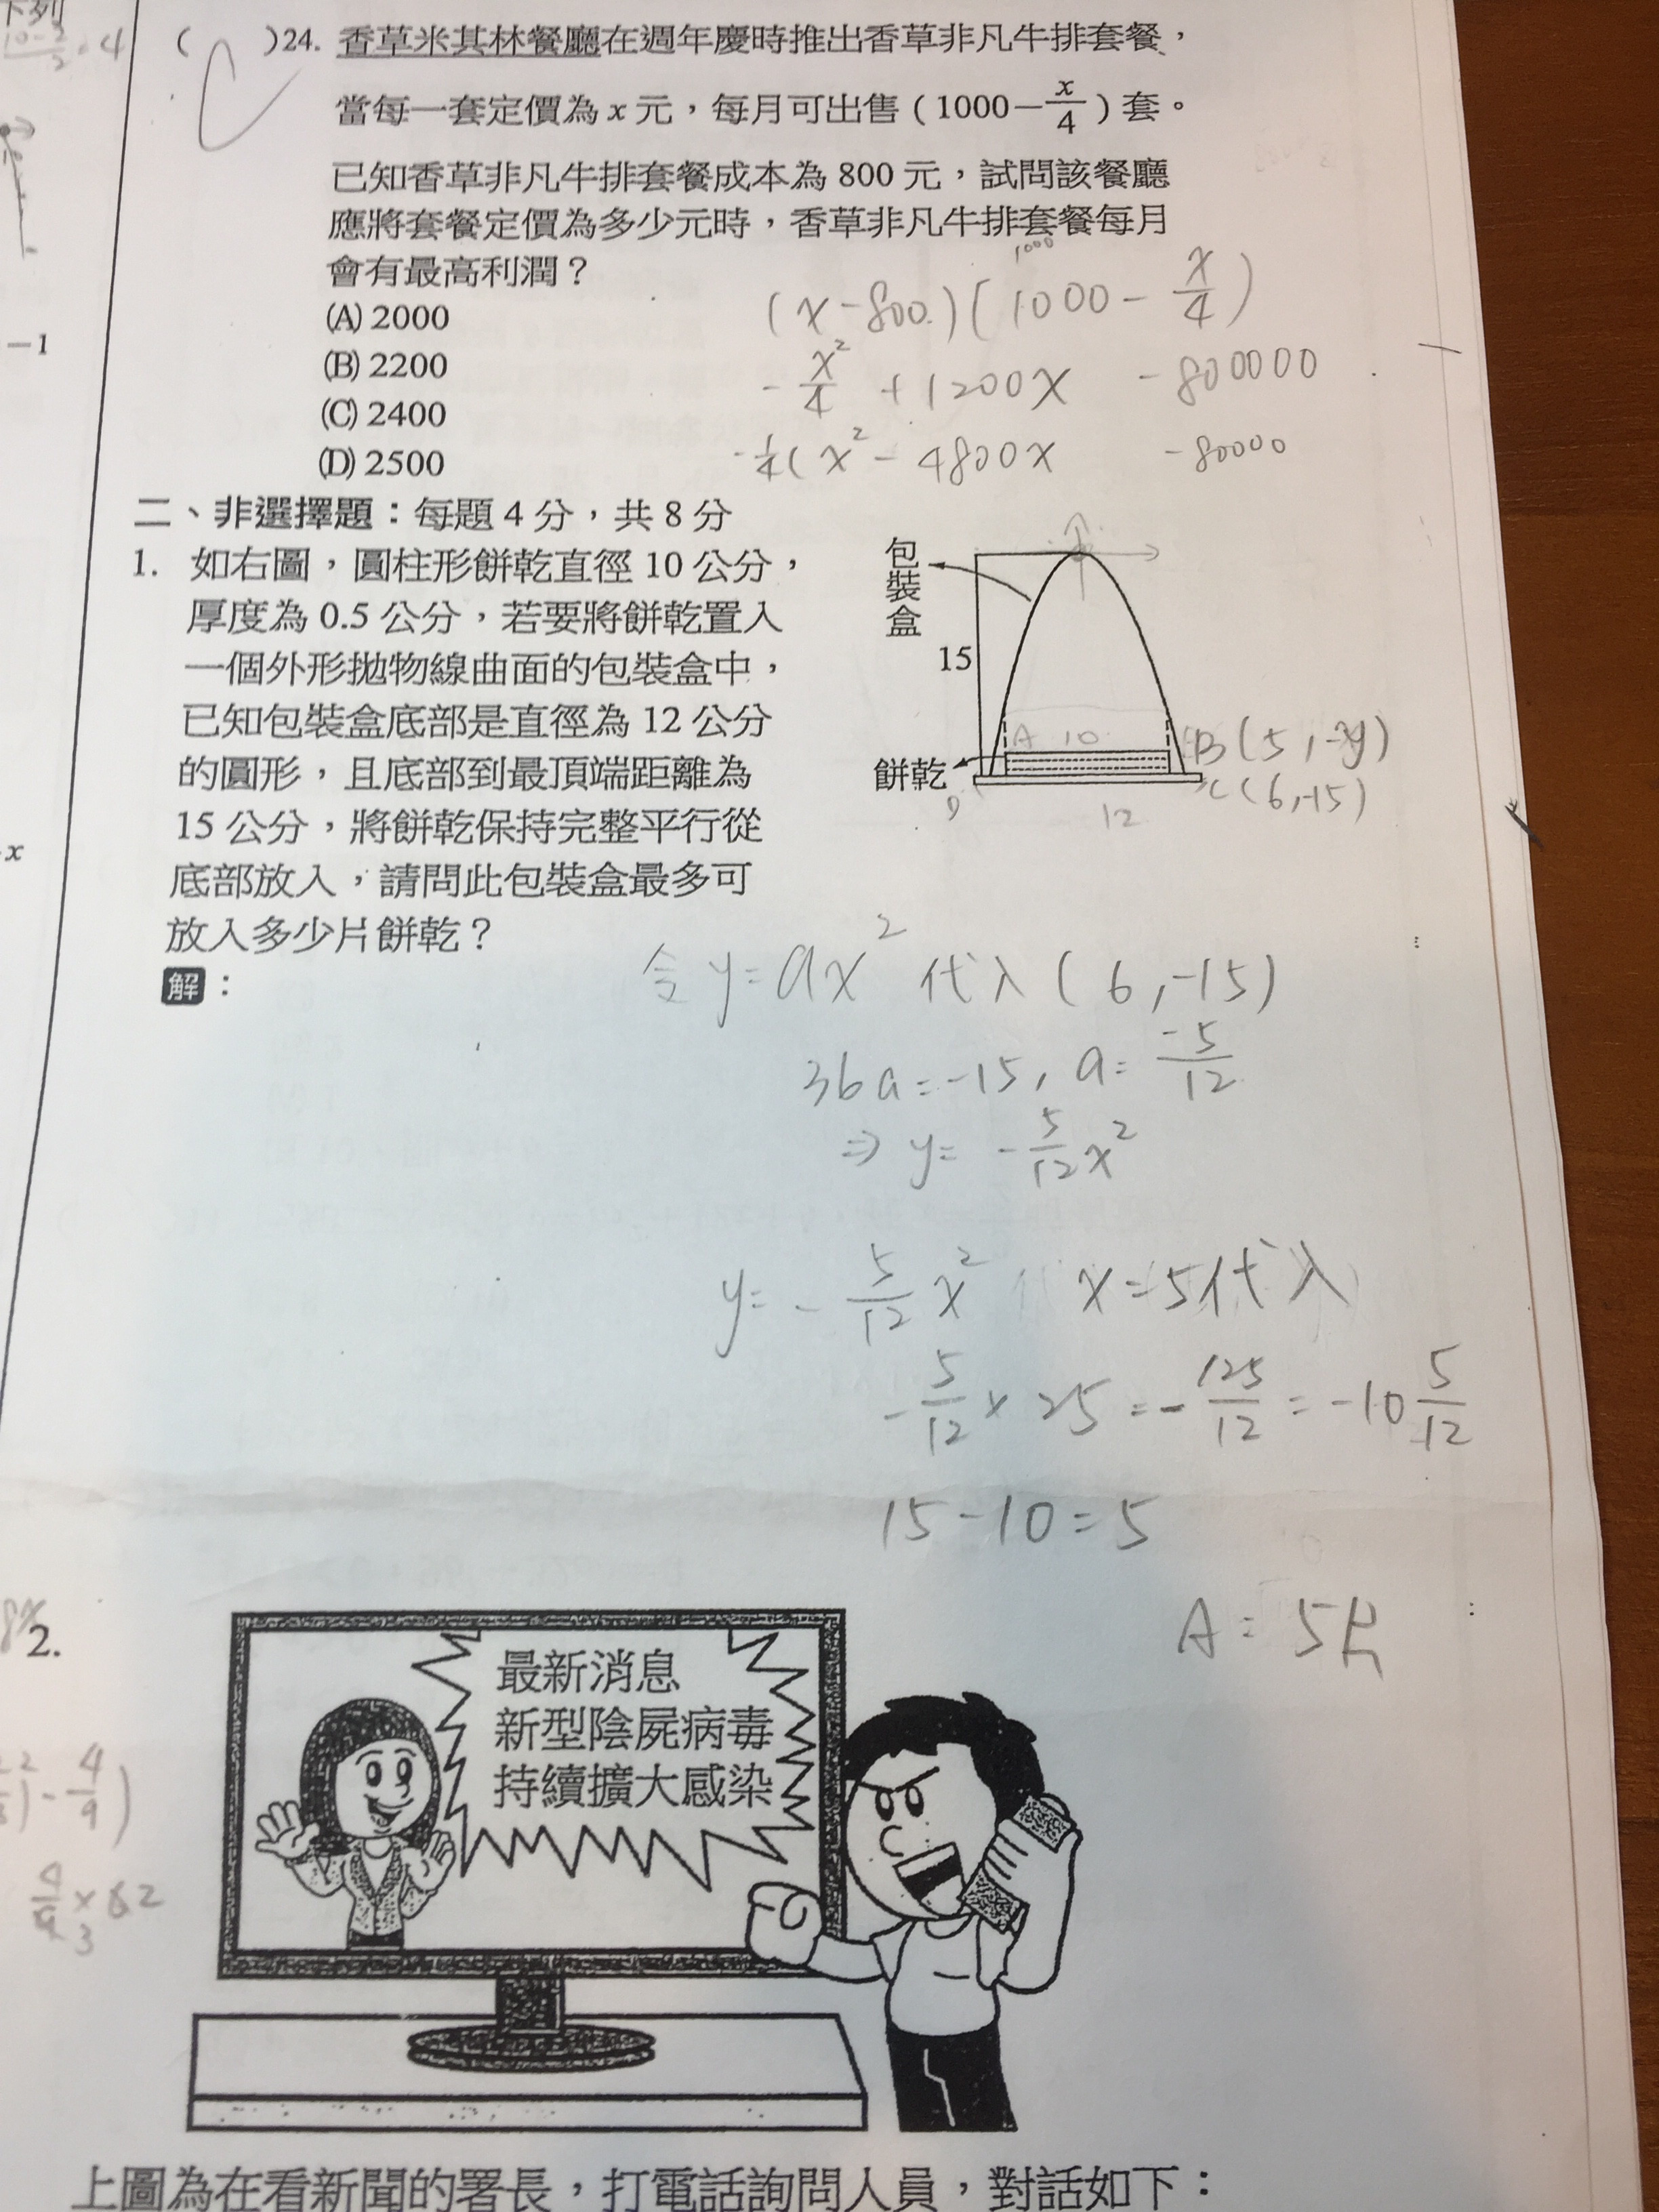 下列
( C )24. 香草米其林餐廳在週年慶時推出香草非凡牛排套餐，
當每一套定價為 x 元，每月可出售 ( 1000－x/4 ) 套。
已知香草非凡牛排套餐成本為 800 元，試問該餐廳
應將套餐定價為多少元時，香草非凡牛排套餐每月
會有最高利潤？
1000
(x-800)(1000-x/4)
(A) 2000
(B) 2200
(C) 2400
(D) 2500
-x²/4 +1200x -800000
-1/4(x²-4800x -80000
－1
二、非選擇題：每題 4 分，共 8 分
1. 如右圖，圓柱形餅乾直徑 10 公分，
厚度為 0.5 公分，若要將餅乾置入
一個外形拋物線曲面的包裝盒中，
已知包裝盒底部是直徑為 12 公分
的圓形，且底部到最頂端距離為
15 公分，將餅乾保持完整平行從
底部放入，請問此包裝盒最多可
放入多少片餅乾？
包裝盒
15
餅乾
A 10
B(5,-y)
C(6,-15)
D
12
x
解：
令y=ax² 代入(6,-15)
36a=-15, a=-5/12
⇒ y= -5/12x²
y= -5/12x² x=5代入
-5/12×25=-125/12=-10 5/12
15-10=5
A=5片
2.
最新消息
新型陰屍病毒
持續擴大感染
上圖為在看新聞的署長，打電話詢問人員，對話如下：